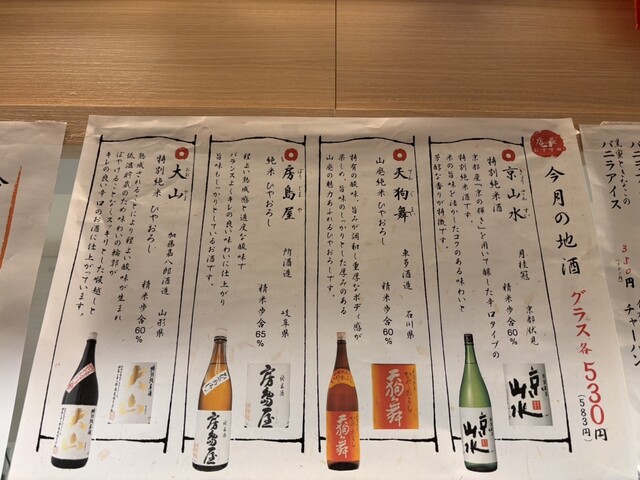 今月の地酒
グラス各530円
(583円)
京山水
特別純米酒
月桂冠 京都伏見
精米歩合60%
京都産「京の輝き」を用いて醸した辛口タイプの
特別純米酒です。
米の旨味を活かしたコクのある味わいと
芳醇な香りが特徴です。
京山水
京山水
天狗舞
山廃純米 ひやおろし
車多酒造 石川県
精米歩合60%
特有の酸味、旨みが調和し重厚なボディ感が
楽しめ、旨味のしっかりとした厚みのある
山廃の魅力あふれるひやおろしです。
天狗舞
天狗舞
房島屋
純米 ひやおろし
所酒造 岐阜県
精米歩合65%
程よい熟成感と適度な酸味で
バランスよくキレの良い味わいに仕上がり
旨味もしっかりとしているお酒です。
純米酒
房島屋
房島屋
大山
特別純米 ひやおろし
加藤嘉八郎酒造 山形県
精米歩合60%
熟成されることにより程よい酸味が生まれ
低温貯蔵のため味わいの輪郭が
ぼやけることなくスッキリとした喉越しと
キレの良い辛口のお酒に仕上がています。
特別純米酒
大山
大山
バニラアイス
350円
チャーハン